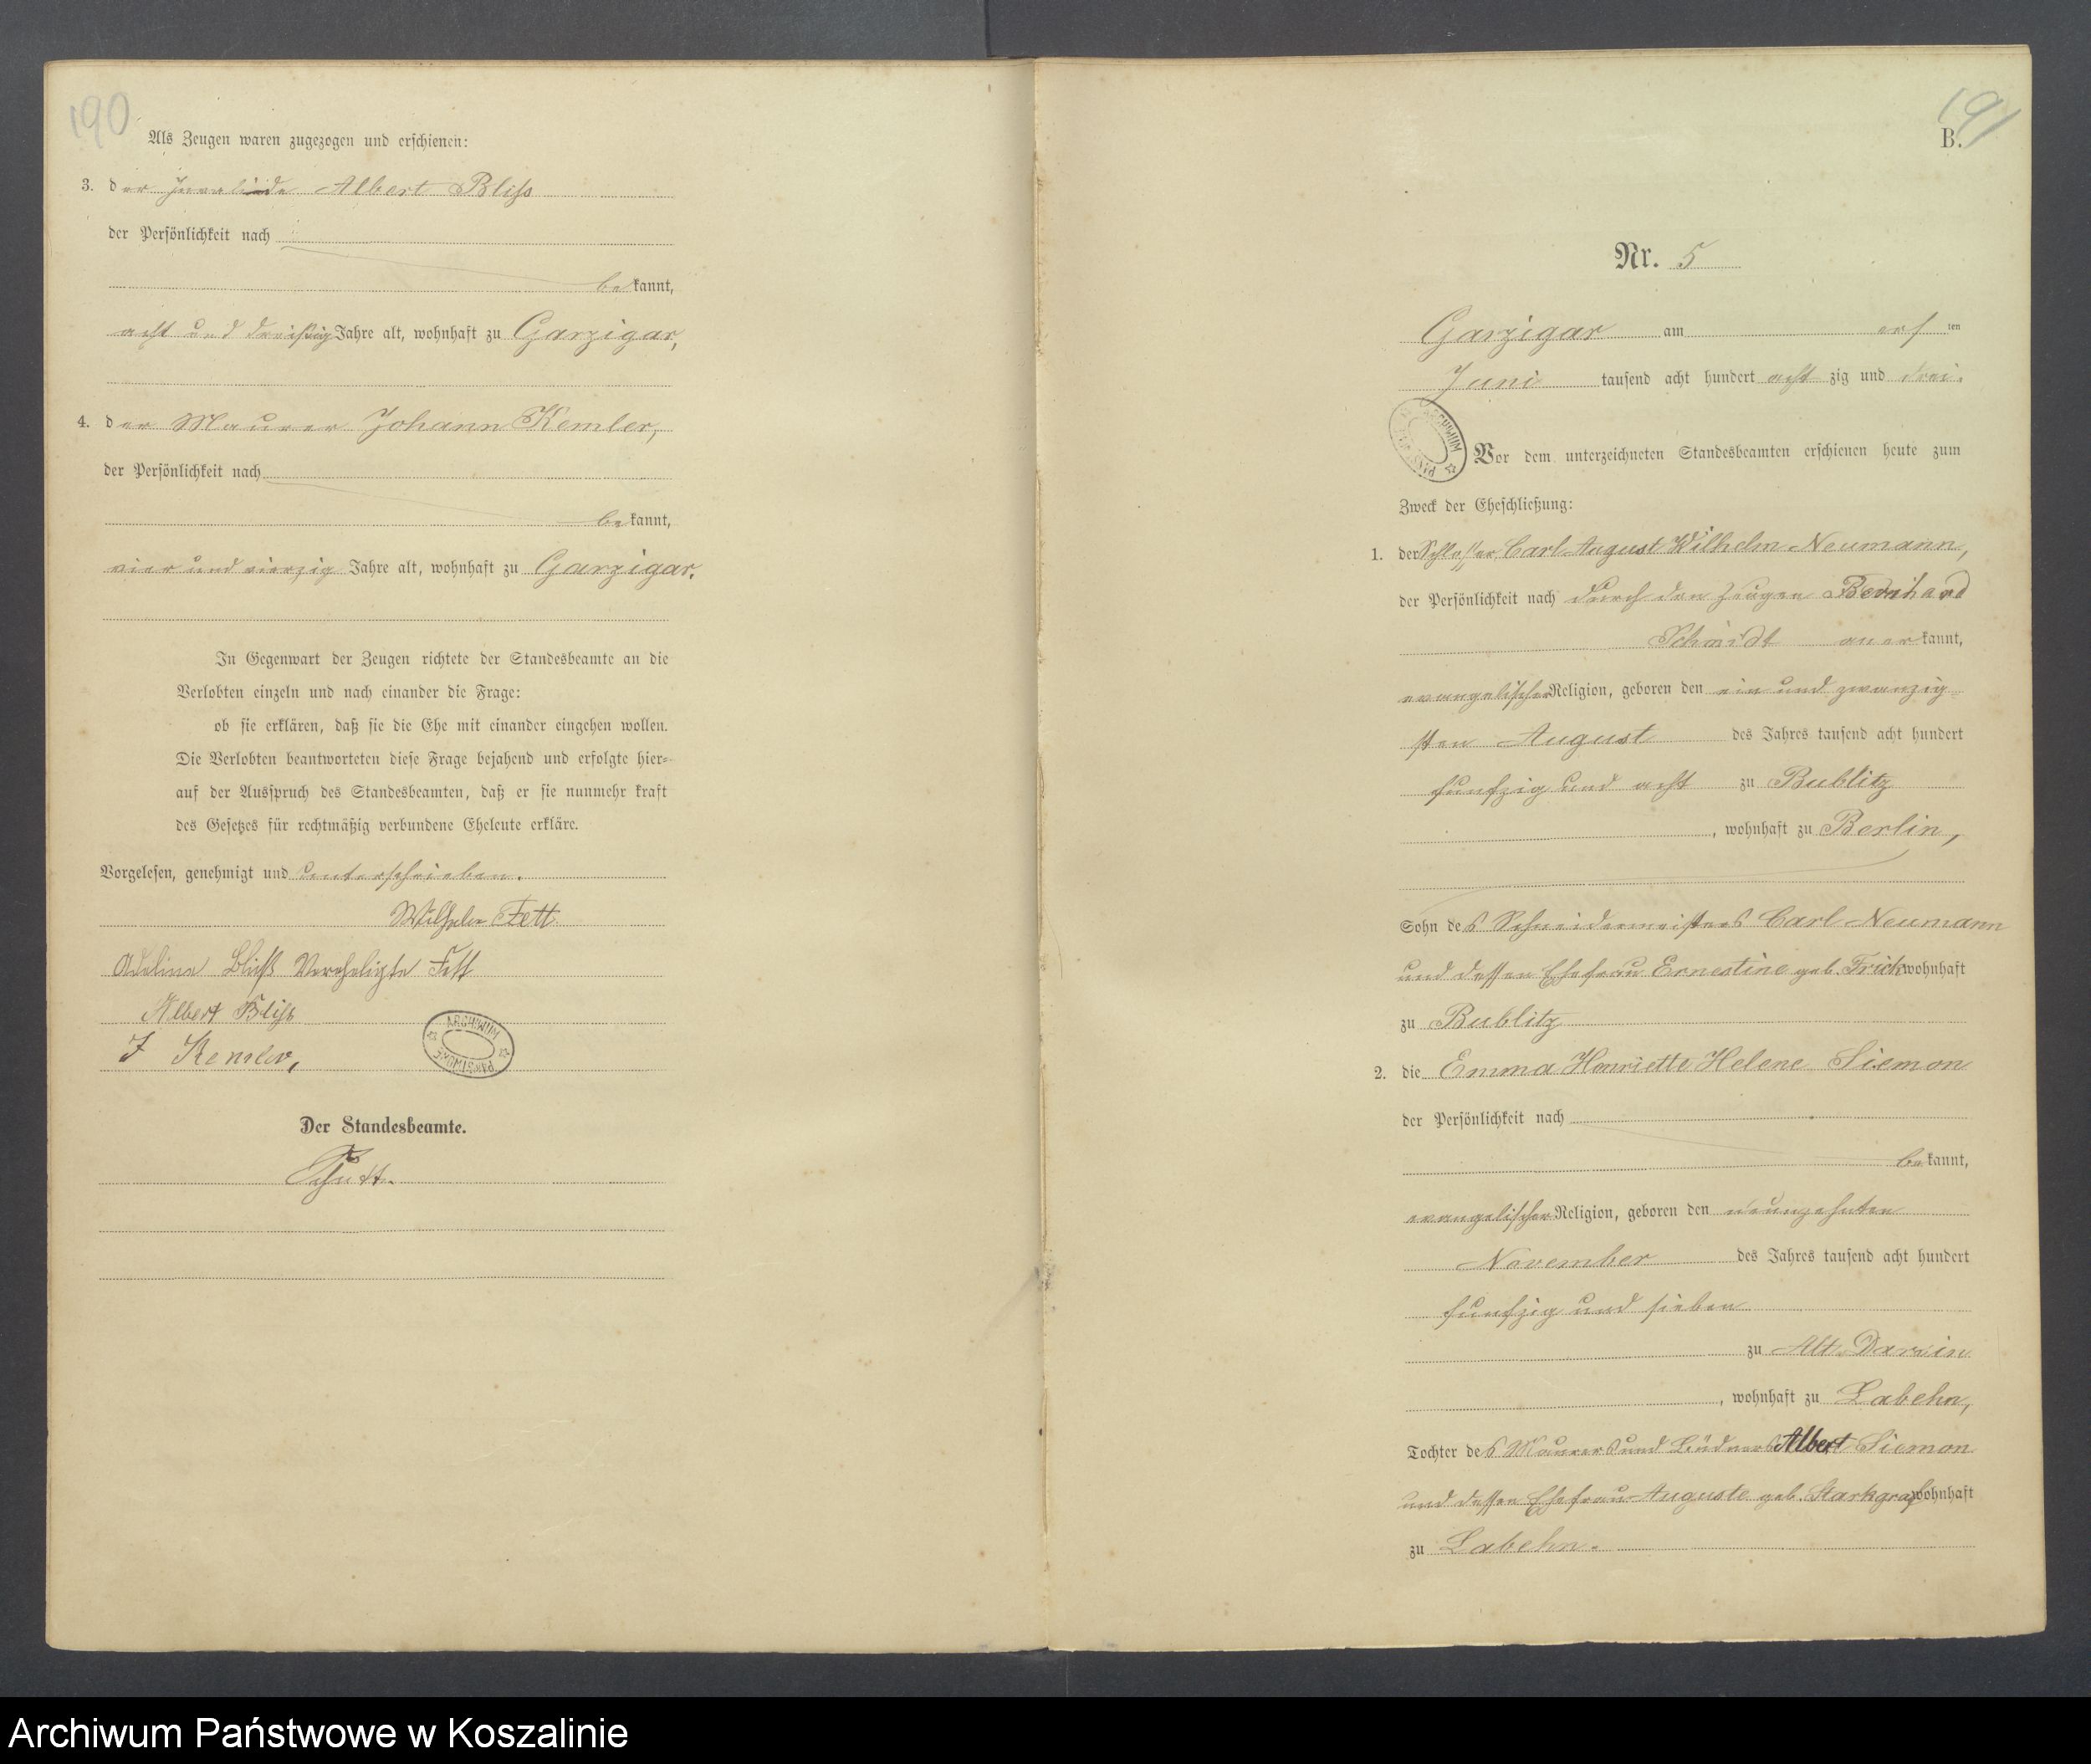 190
Als Zeugen waren zugezogen und erschienen:
3. der Invalide Albert Bliß
der Persönlichkeit nach
bekannt,
acht und dreißig Jahre alt, wohnhaft zu Garzigar,
4. der Maurer Johann Kemler,
der Persönlichkeit nach
bekannt,
vier und vierzig Jahre alt, wohnhaft zu Garzigar.
In Gegenwart der Zeugen richtete der Standesbeamte an die
Verlobten einzeln und nach einander die Frage:
ob sie erklären, daß sie die Ehe mit einander eingehen wollen.
Die Verlobten beantworteten diese Frage bejahend und erfolgte hier-
auf der Ausspruch des Standesbeamten, daß er sie nunmehr kraft
des Gesetzes für rechtmäßig verbundene Eheleute erkläre.
Vorgelesen, genehmigt und unterschrieben.
Wilhelm Fett
Adeline Bließ Vereheligte Fett
Albert Bliß
J Kemler,
ARCHIWUM PAŃSTWOWE
Der Standesbeamte.
191
B.
Nr. 5
Garzigar am ersten
Juni tausend acht hundert acht zig und drei.
ARCHIWUM PAŃSTWOWE
Vor dem unterzeichneten Standesbeamten erschienen heute zum
Zweck der Eheschließung:
1. der Schlosser Carl August Wilhelm Neumann,
der Persönlichkeit nach durch den Zeugen Bernhard
Schmidt anerkannt,
evangelischer Religion, geboren den ein und zwanzig-
sten August des Jahres tausend acht hundert
funfzig und acht zu Bublitz
, wohnhaft zu Berlin,
Sohn des Schneidermeisters Carl Neumann
und dessen Ehefrau Ernestine geb. Frick wohnhaft
zu Bublitz
2. die Emma Henriette Helene Siemon
der Persönlichkeit nach
bekannt,
evangelischer Religion, geboren den neunzehnten
November des Jahres tausend acht hundert
funfzig und sieben
zu Alt Darsin
, wohnhaft zu Labehn,
Tochter des Maurers und Büdners Albert Siemon
und dessen Ehefrau Auguste geb. Starkgraf wohnhaft
zu Labehn.
Archiwum Państwowe w Koszalinie